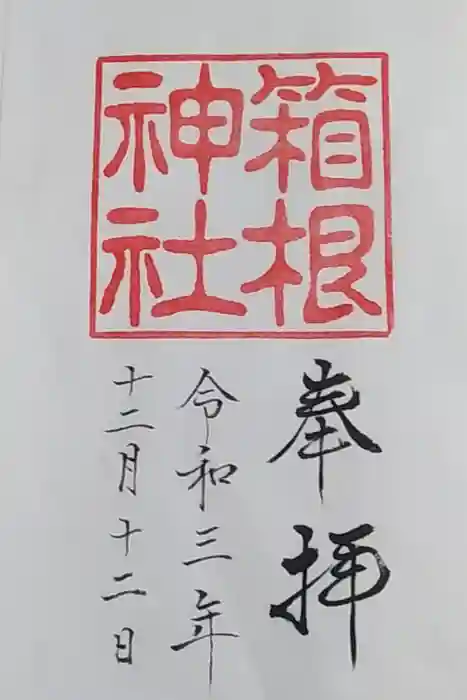 箱根
神社
奉拝
令和三年
十二月十二日